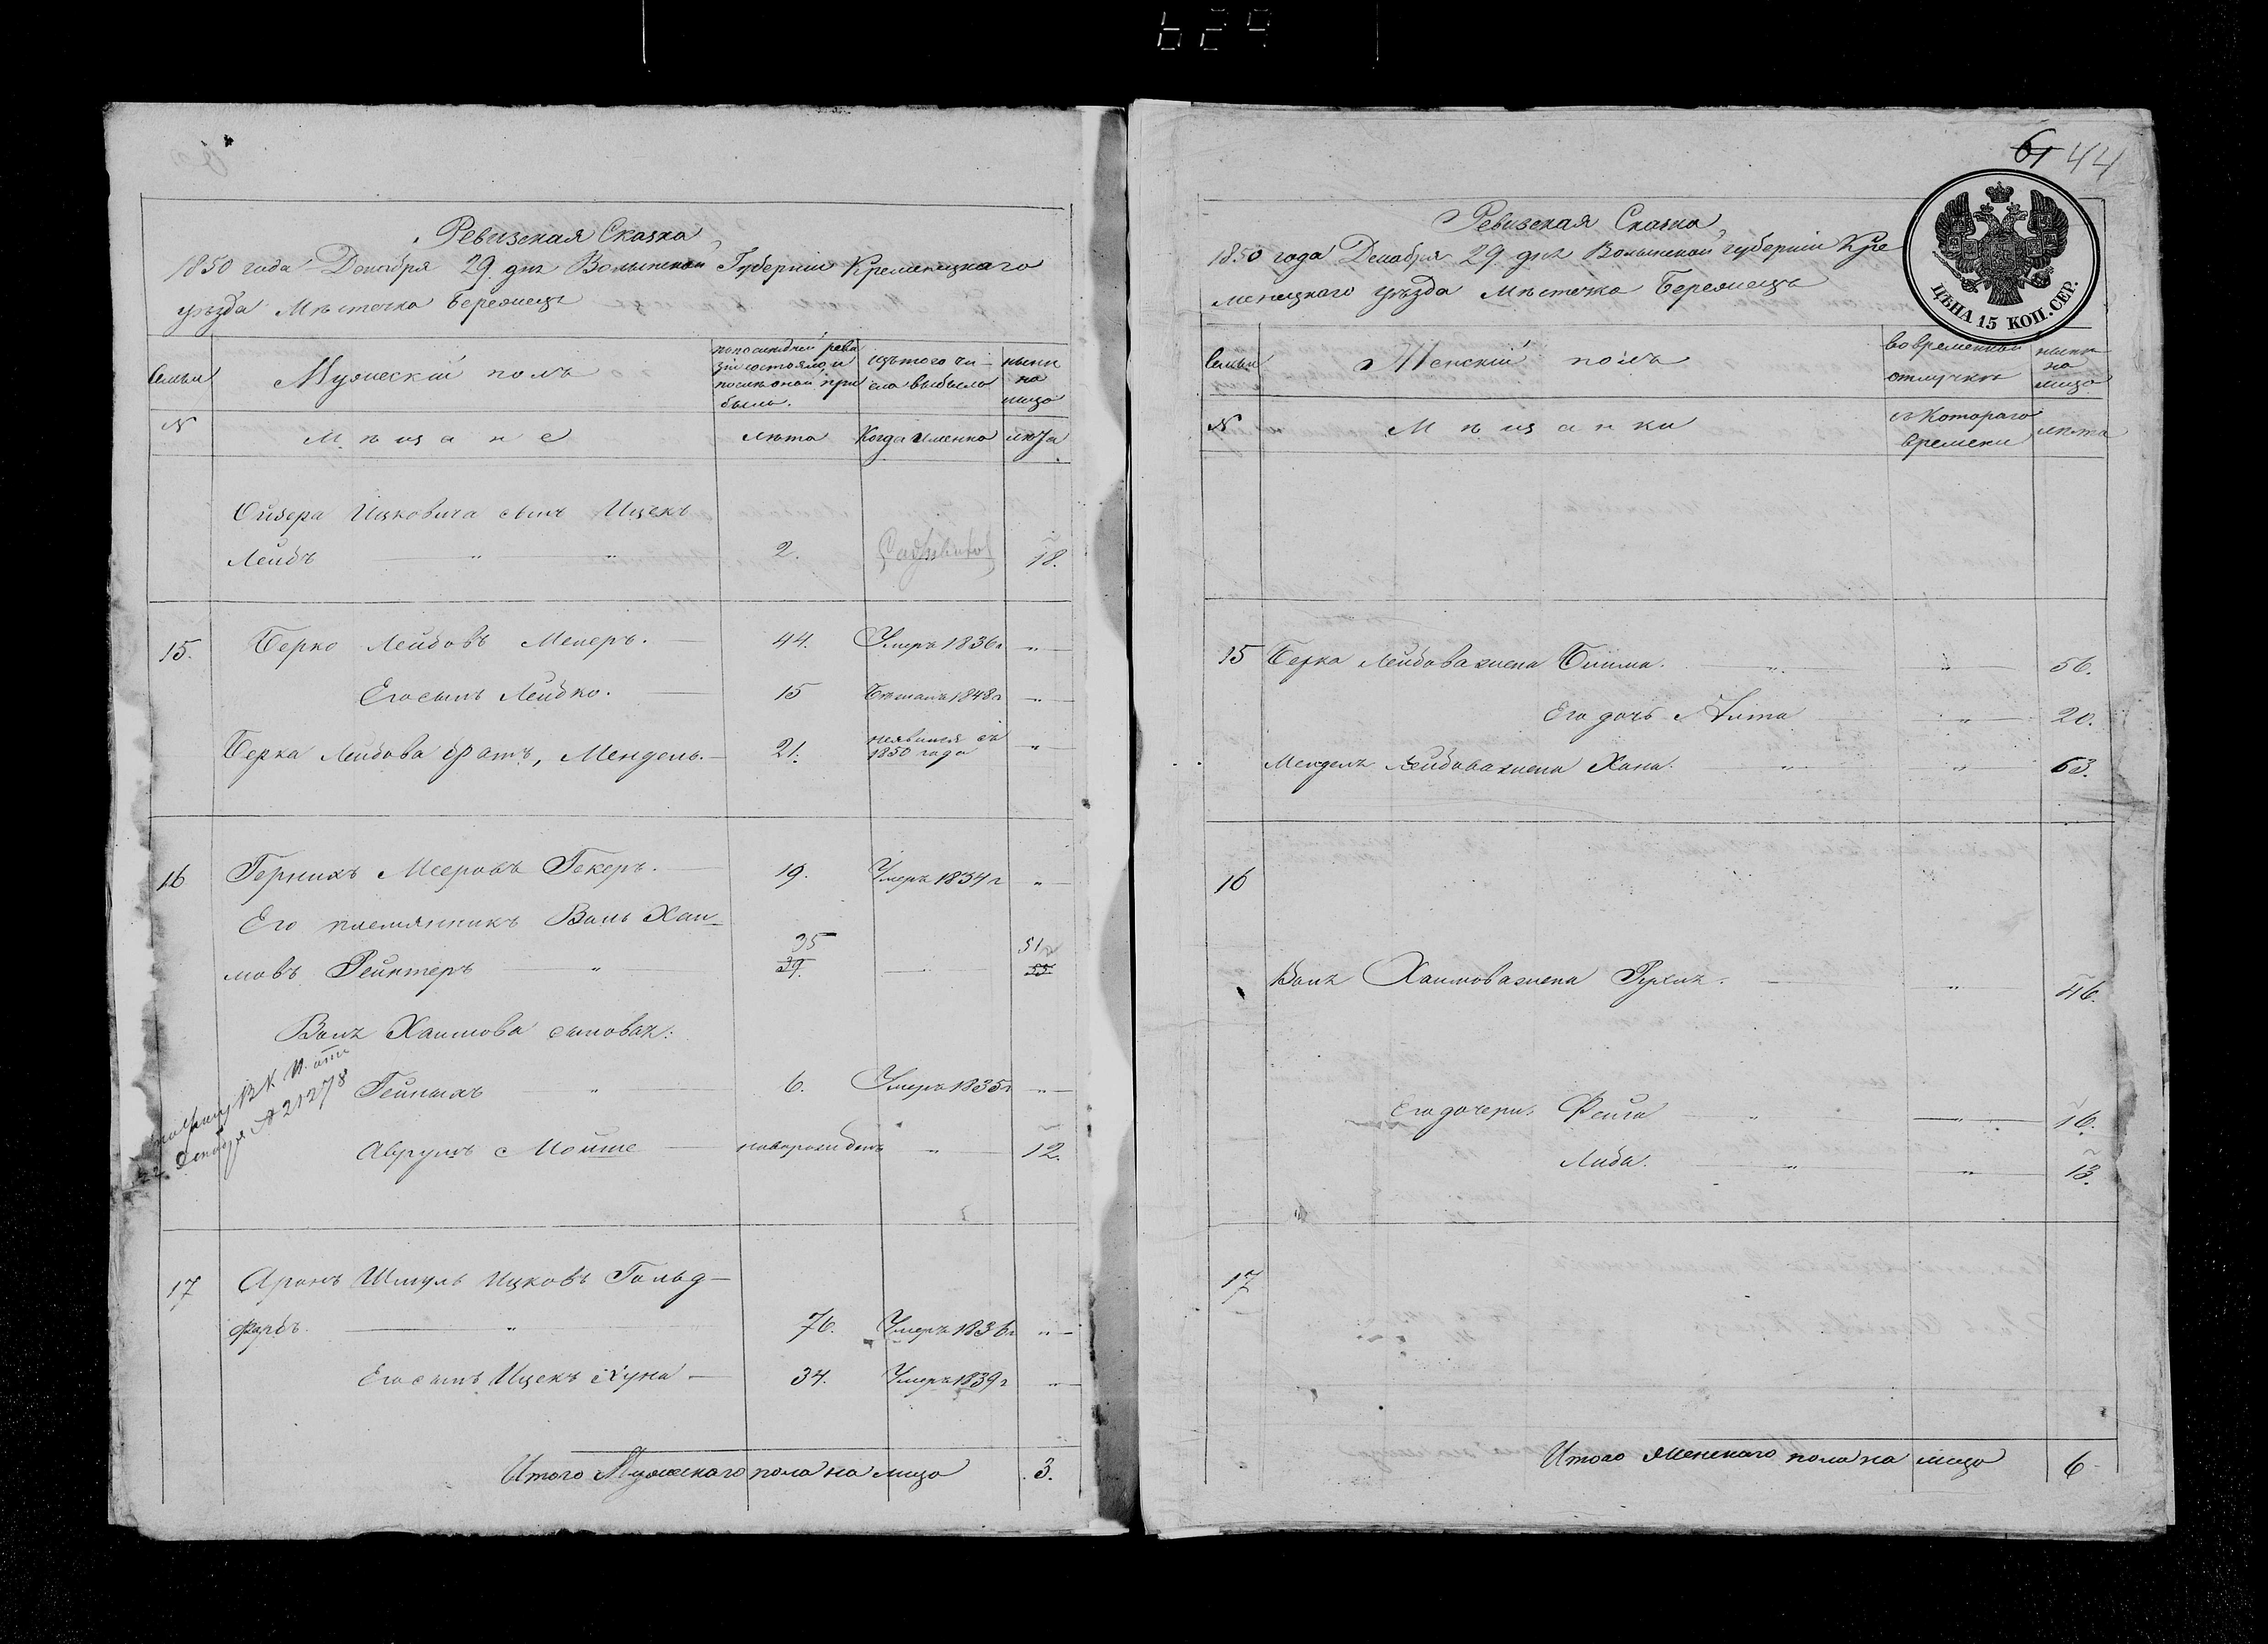 629
Ревизская Сказка,
1850 года Декабря 29 дня Волынской Губерніи Кременецкаго
уѣзда Мѣстечка Бережецъ
Семьи
Мужескій полъ
по последней реви
зіи состояло, и
после оной при
было.
изъ того чи-
сла выбыло
нынѣ
на
лицо
N
Мѣщане
лѣта
Когда именно
лѣта
Ойзера Ицковича сынъ Ицекъ
Лейбъ " " 2. 18.
15. Берко Лейбовъ Мелеръ. 44. Умеръ 1836 г "
Его сынъ Лейбко. 15 Бѣжалъ 1848 г "
Берка Лейбова братъ, Мендель. 21. неявился съ
1850 года "
16 Гершхъ Мееровъ Гекеръ. 19. Умеръ 1834 г "
Его племянникъ Воль Хаи-
35 51
мовъ Рейнтеръ " 39. 55
Воля Хаимова сыновья:
Гейнихъ " 6. Умеръ 1835 г "
Аврумъ Мойше новорожденъ " 12.
Декабря № 21278
17 Аронъ Шмуль Ицковъ Гольд-
фарбъ. " 76. Умеръ 1836 г "
Его сынъ Ицекъ Хуна 34. Умеръ 1839 г "
Итого Мужескаго пола на лицо 3.
61 44
Ревизская Сказка,
1850 года Декабря 29 дня Волынской губерніи Кре
менецкаго уѣзда Мѣстечка Бережецъ
ЦѢНА 15 КОП. СЕР.
Семьи
Женскій полъ
во временной
отлучкѣ
нынѣ
на
лицо
N
Мѣщанки
съ Котораго
времени
лѣта
15 Берка Лейбова жена Бишма. " " 56.
Его дочь " 20.
Менделя Лейбова жена Хана. " " 63.
16
Воля Хаимова жена Рухля. " 46.
Его дочери: Фейга " 16.
Либа. " " 13.
17
Итого Женскаго пола на лицо 6